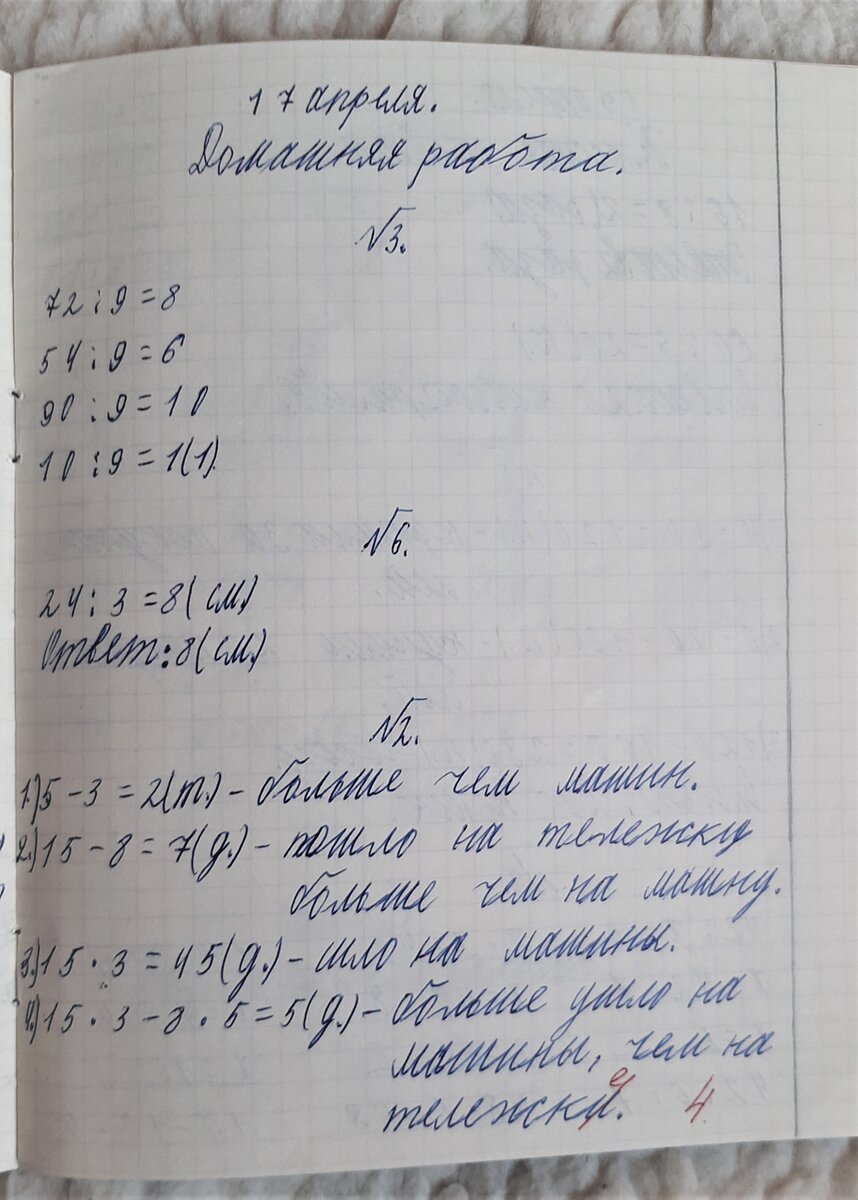 17 апреля.
Домашняя работа.
№3.
72:9=8
54:9=6
90:9=10
10:9=1(1)
№6.
24:3=8(см.)
Ответ:8(см.)
№2.
1.)5-3=2(т.)-больше чем машин.
2.)15-8=7(д.)-пошло на тележку
больше чем на машну.
3.)15·3=45(д.)-шло на машины.
4.)15·3-8·5=5(д.)-больше ушло на
машины, чем на
тележки.
4